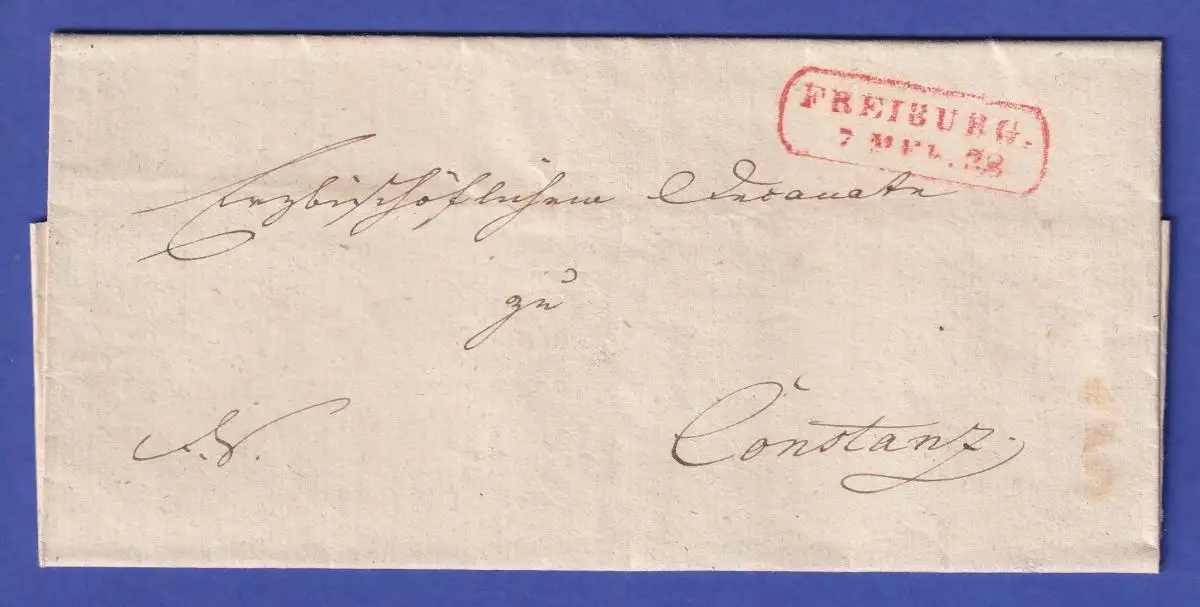 FREIBURG.
Erzbischöflichem Decanate
zu
Constanz.